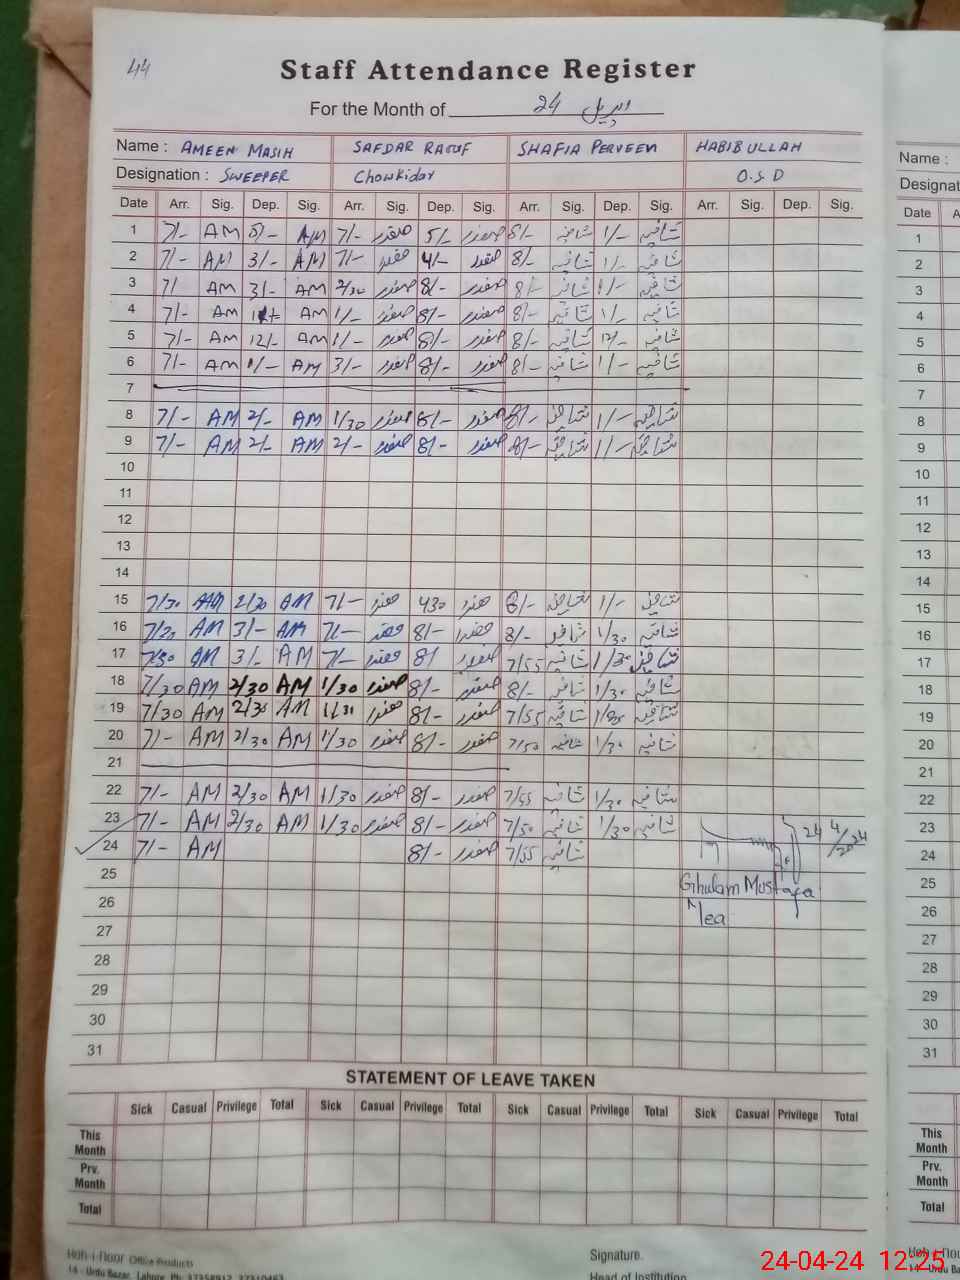 44
Staff Attendance Register
For the Month of اپریل 24
Name : AMEEN MASIH SAFDAR RAOUF SHAFIA PERVEEN HABIBULLAH
Designation : SWEEPER Chowkidar O.S.D
Date Arr. Sig. Dep. Sig. Arr. Sig. Dep. Sig. Arr. Sig. Dep. Sig. Arr. Sig. Dep. Sig.
1 7/- AM 5/- AM 7/- صفدر 5/- صفدر 8/- شافیہ 1/- شافیہ
2 7/- AM 3/- AM 7/- صفدر 4/- صفدر 8/- شافیہ 1/- شافیہ
3 7/ AM 3/- AM 2/30 صفدر 8/- صفدر 8/- شافیہ 1/- شافیہ
4 7/- AM AM 1/- صفدر 8/- صفدر 8/- شافیہ 1/- شافیہ
5 7/- AM 12/- AM 1/- صفدر 8/- صفدر 8/- شافیہ 12/- شافیہ
6 7/- AM 1/- AM 3/- صفدر 8/- صفدر 8/- شافیہ 1/- شافیہ
7
8 7/- AM 2/- AM 1/30 صفدر 8/- صفدر 8/- شافیہ 1/- شافیہ
9 7/- AM 2/- AM 2/- صفدر 8/- صفدر 8/- شافیہ 1/- شافیہ
10
11
12
13
14
15 7/30 AM 2/30 AM 7/- صفدر 430 صفدر 8/- شافیہ 1/- شافیہ
16 7/30 AM 3/- AM 7/- صفدر 8/- صفدر 8/- شافیہ 1/30 شافیہ
17 7/30 AM 3/- AM 7/- صفدر 8/ صفدر 7/55 شافیہ 1/30 شافیہ
18 7/30 AM 2/30 AM 1/30 صفدر 8/- صفدر 8/- شافیہ 1/30 شافیہ
19 7/30 AM 2/30 AM صفدر 8/- صفدر 7/55 شافیہ شافیہ
20 7/- AM 2/30 AM 1/30 صفدر 8/- صفدر 7/50 شافیہ 1/30 شافیہ
21
22 7/- AM 2/30 AM 1/30 صفدر 8/- صفدر 7/55 شافیہ 1/30 شافیہ
23 7/- AM 2/30 AM 1/30 صفدر 8/- صفدر 7/50 شافیہ 1/30 شافیہ
24 4/2024
24 7/- AM 8/- صفدر 7/55 شافیہ
25
Ghulam Mustafa
26
Mea
27
28
29
30
31
STATEMENT OF LEAVE TAKEN
Sick Casual Privilege Total Sick Casual Privilege Total Sick Casual Privilege Total Sick Casual Privilege Total
This Month
Prv. Month
Total
Hoh-i-Noor Office Products
Signature.
14 - Urdu Bazar, Lahore. Ph: 37358912, 37310463
Head of Institution
24-04-24 12:25
Name :
Designat
Date A
1
2
3
4
5
6
7
8
9
10
11
12
13
14
15
16
17
18
19
20
21
22
23
24
25
26
27
28
29
30
31
This Month
Prv. Month
Total